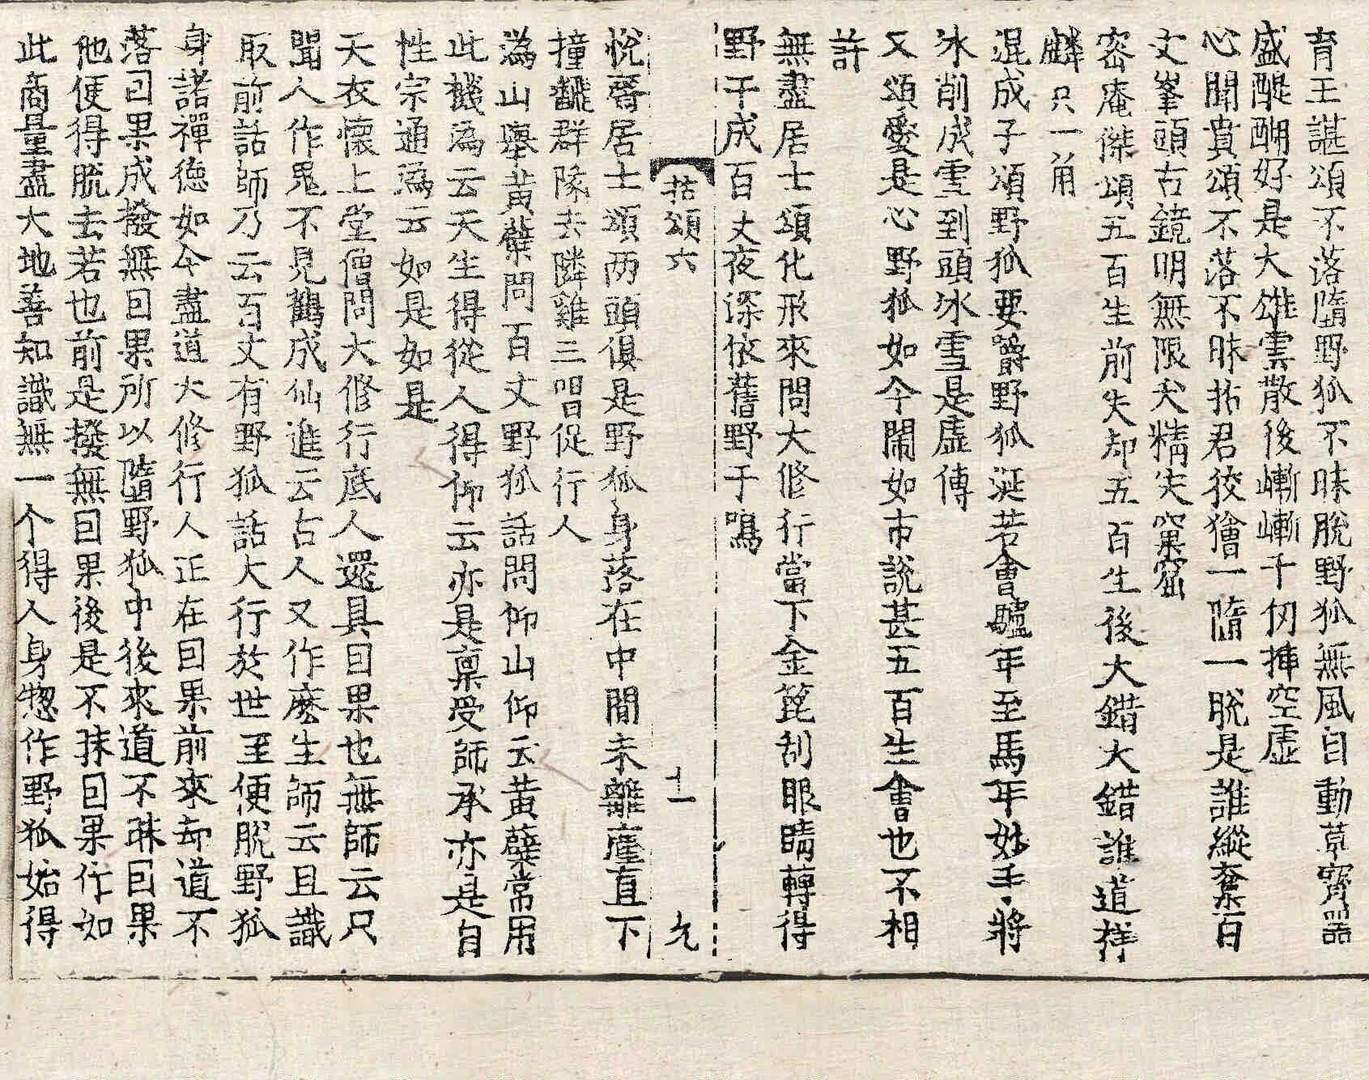 育王諶頌不落墮野狐不昧脫野狐無風自動草寶器
盛醍醐好是大雄雲散後嶄嶄千仞揷空虛
心聞賁頌不落不昧拈君狡獪一墮一脫是誰縱奪百
丈峯頭古鏡明無限犬精失窠窟
密庵傑頌五百生前失却五百生後大錯大錯誰道祥
麟只一角
混成子頌野狐要嚼野狐涎若會驢年至馬年妙手將
冰削成雪到頭冰雪是虛傳
又頌愛是心野狐如今閙如市說甚五百生會也不相
許
無盡居士頌化形來問大修行當下金篦刮眼睛轉得
野干成百丈夜深依舊野干鳴
拈頌六 十一 九
悅齋居士頌两頭俱是野狐身落在中間未離塵直下
撞飜群隊去隣雞三唱促行人
潙山舉黃蘗問百丈野狐話問仰山仰云黃蘗常用
此機潙云天生得從人得仰云亦是稟受師承亦是自
性宗通潙云如是如是
天衣懷上堂僧問大修行底人還具因果也無師云只
聞人作鬼不見鶴成仙進云古人又作麽生師云且識
取前話師乃云百丈有野狐話大行於世至便脫野狐
身諸禪德如今盡道大修行人正在因果前來却道不
落因果成撥無因果所以墮野狐中後來道不昧因果
他便得脫去若也前是撥無因果後是不抹因果作如
此商量盡大地善知識無一个得人身惣作野狐始得